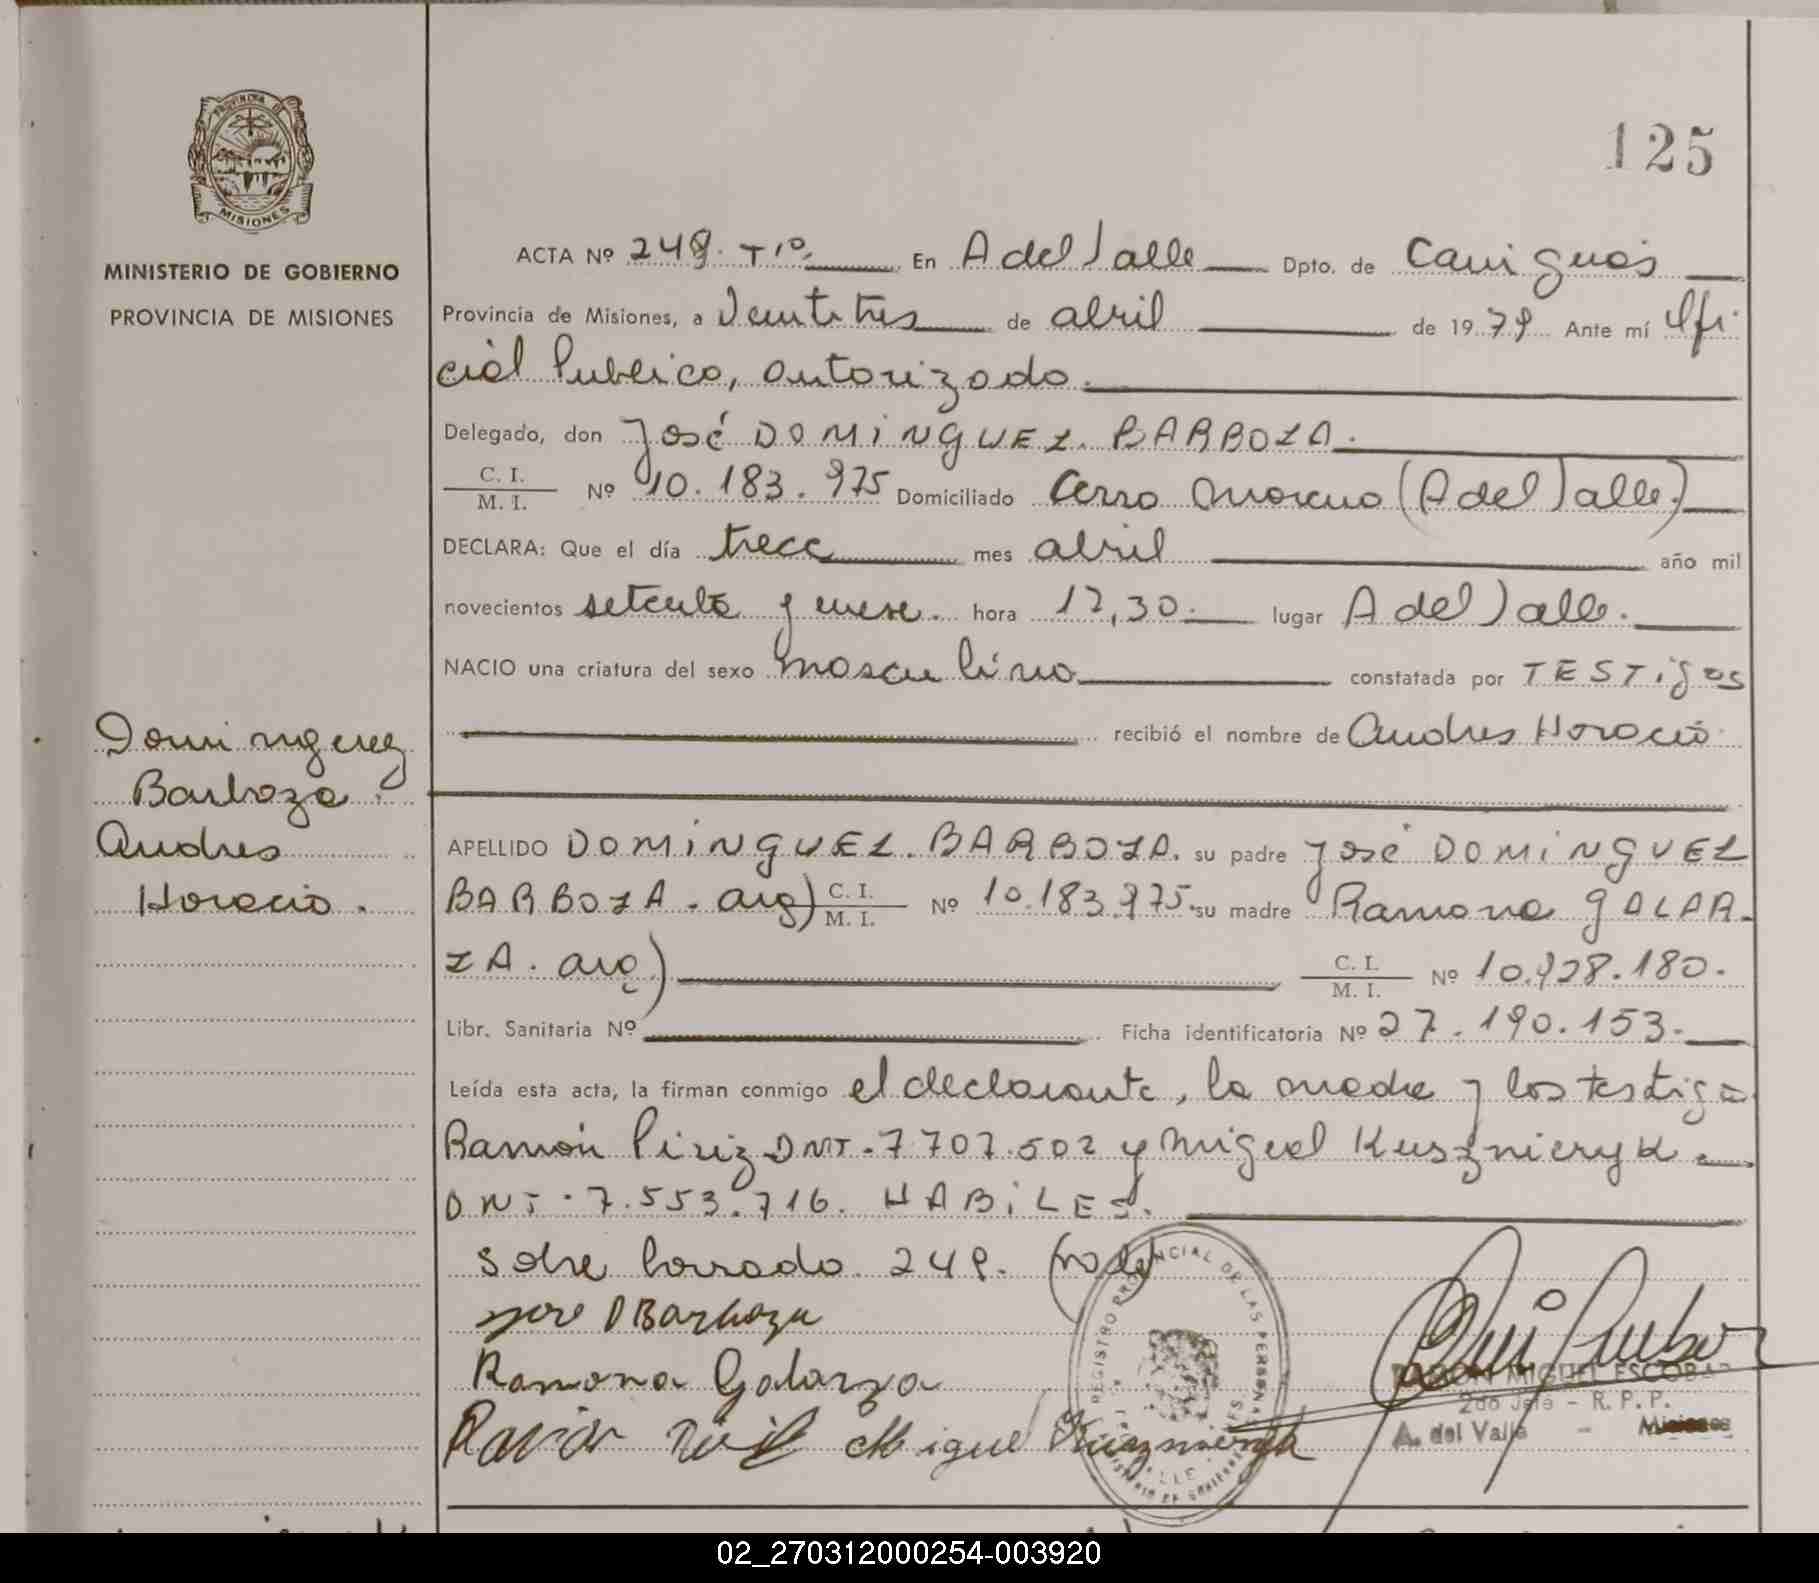 PROVINCIA DE
MISIONES
MINISTERIO DE GOBIERNO
PROVINCIA DE MISIONES
125
ACTA Nº 249. Tº1. En A del Valle Dpto. de Cainguás
Provincia de Misiones, a Veintitres de abril de 1979 Ante mí Ofi-
cial Publico, autorizado.
Delegado, don José DOMINGUEZ. BARBOZA.
C. I.
M. I. Nº 10.183.975 Domiciliado Cerro Moreno (A del Valle)
DECLARA: Que el día trece mes abril año mil
novecientos setenta y nueve. hora 17,30. lugar A del Valle.
NACIO una criatura del sexo masculino constatada por TESTigos
recibió el nombre de Andres Horacio
Dominguez
Barboza.
Andres
Horacio.
APELLIDO DOMINGUEZ. BARBOZA. su padre José DOMINGUEZ
BARBOZA. arg) C. I.
M. I. Nº 10.183.975. su madre Ramona GALAR-
ZA. arg.) C. I.
M. I. Nº 10.928.180.
Libr. Sanitaria Nº Ficha identificatoria Nº 27.190.153.
Leída esta acta, la firman conmigo el declarante, la madre y los testigos
Ramón Piriz DNI. 7707.502 y Miguel Kusznieryk
DNI. 7.553.716. HABILES.
Sobre borrado 249. Vale
Jose D Barboza
Ramona Galarza
Ramón Piriz Miguel Kuznieryk
REGISTRO PROVINCIAL DE LAS PERSONAS
RAMON MIGUEL ESCOBAR
2do Jefe - R. P. P.
A. del Valle - Misiones
02_270312000254-003920